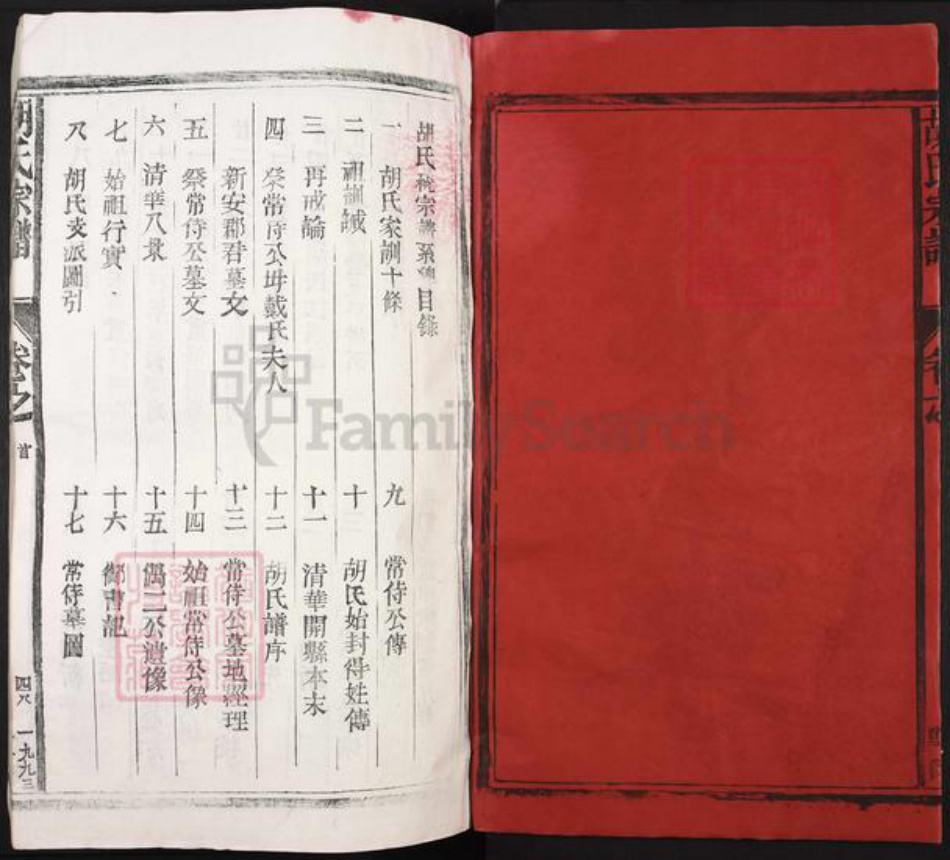 胡氏統宗譜系總目錄
一 胡氏家訓十條
二 祖訓誡
三 再戒論
四 祭常侍公毋戴氏夫人
新安郡君墓文
五 祭常侍公墓文
六 清華八景
七 始祖行實
八 胡氏支派圖引
九 常侍公傳
十 胡氏始封得姓傳
十一 清華開縣本末
十二 胡氏譜序
十三 常侍公墓地經理
十四 始祖常侍公像
十五 偶二公遺像
十六 御書記
十七 常侍墓圖
胡氏宗譜
卷之
首
四八
一九九三
胡氏宗譜
FamilySearch